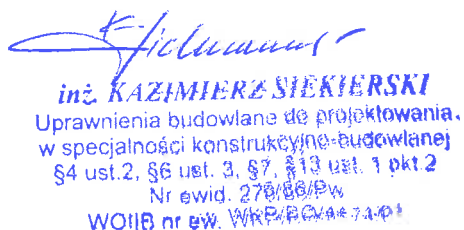 inż. KAZIMIERZ SIEKIERSKI
Uprawnienia budowlane do projektowania
w specjalności konstrukcyjno-budowlanej
§4 ust.2, §6 ust. 3, §7, §13 ust. 1 pkt 2
Nr ewid. 276/86/Pw
WOIIB nr ew.